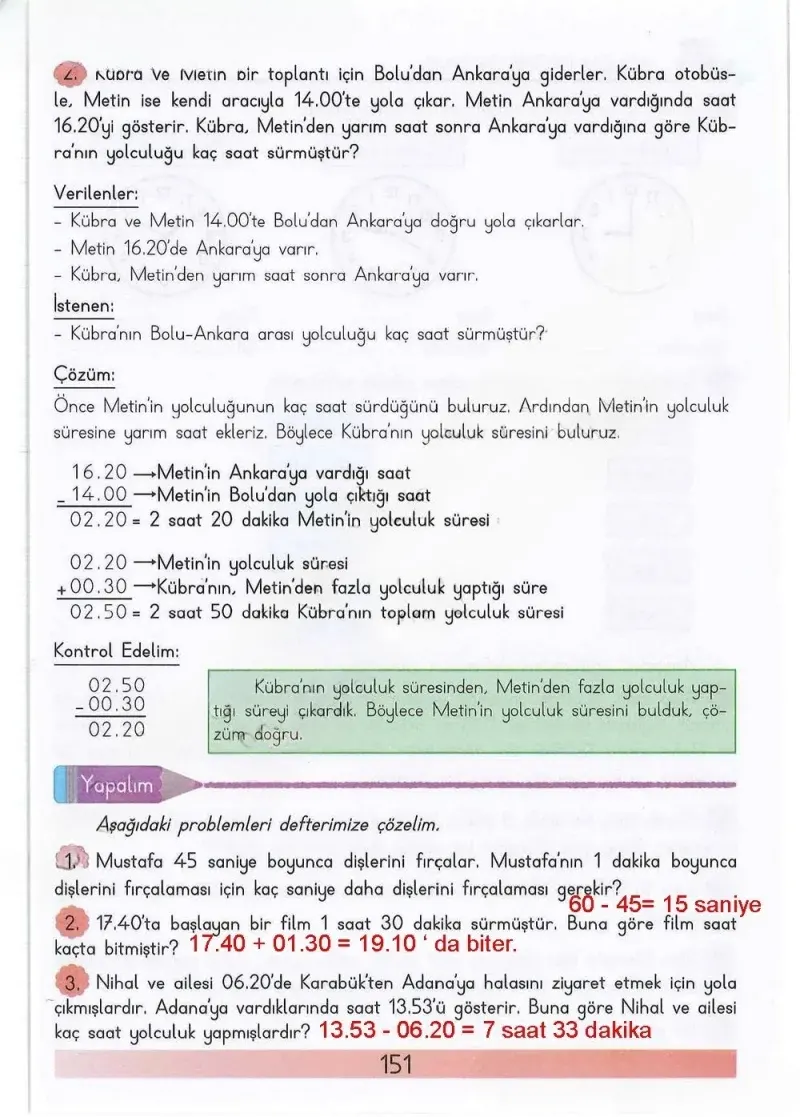 2. Kübra ve Metin bir toplantı için Bolu'dan Ankara'ya giderler. Kübra otobüs-
le, Metin ise kendi aracıyla 14.00'te yola çıkar. Metin Ankara'ya vardığında saat
16.20'yi gösterir. Kübra, Metin'den yarım saat sonra Ankara'ya vardığına göre Küb-
ra'nın yolculuğu kaç saat sürmüştür?
Verilenler:
- Kübra ve Metin 14.00'te Bolu'dan Ankara'ya doğru yola çıkarlar.
- Metin 16.20'de Ankara'ya varır.
- Kübra, Metin'den yarım saat sonra Ankara'ya varır.
İstenen:
- Kübra'nın Bolu-Ankara arası yolculuğu kaç saat sürmüştür?
Çözüm:
Önce Metin'in yolculuğunun kaç saat sürdüğünü buluruz. Ardından Metin'in yolculuk
süresine yarım saat ekleriz. Böylece Kübra'nın yolculuk süresini buluruz.
16.20 →Metin'in Ankara'ya vardığı saat
- 14.00 →Metin'in Bolu'dan yola çıktığı saat
02.20 = 2 saat 20 dakika Metin'in yolculuk süresi
02.20 →Metin'in yolculuk süresi
+00.30 →Kübra'nın, Metin'den fazla yolculuk yaptığı süre
02.50 = 2 saat 50 dakika Kübra'nın toplam yolculuk süresi
Kontrol Edelim:
02.50
-00.30
02.20
Kübra'nın yolculuk süresinden, Metin'den fazla yolculuk yap-
tığı süreyi çıkardık. Böylece Metin'in yolculuk süresini bulduk, çö-
züm doğru.
Yapalım
Aşağıdaki problemleri defterimize çözelim.
1. Mustafa 45 saniye boyunca dişlerini fırçalar. Mustafa'nın 1 dakika boyunca
dişlerini fırçalaması için kaç saniye daha dişlerini fırçalaması gerekir?
60 - 45= 15 saniye
2. 17.40'ta başlayan bir film 1 saat 30 dakika sürmüştür. Buna göre film saat
kaçta bitmiştir? 17.40 + 01.30 = 19.10 ' da biter.
3. Nihal ve ailesi 06.20'de Karabük'ten Adana'ya halasını ziyaret etmek için yola
çıkmışlardır. Adana'ya vardıklarında saat 13.53'ü gösterir. Buna göre Nihal ve ailesi
kaç saat yolculuk yapmışlardır? 13.53 - 06.20 = 7 saat 33 dakika
151